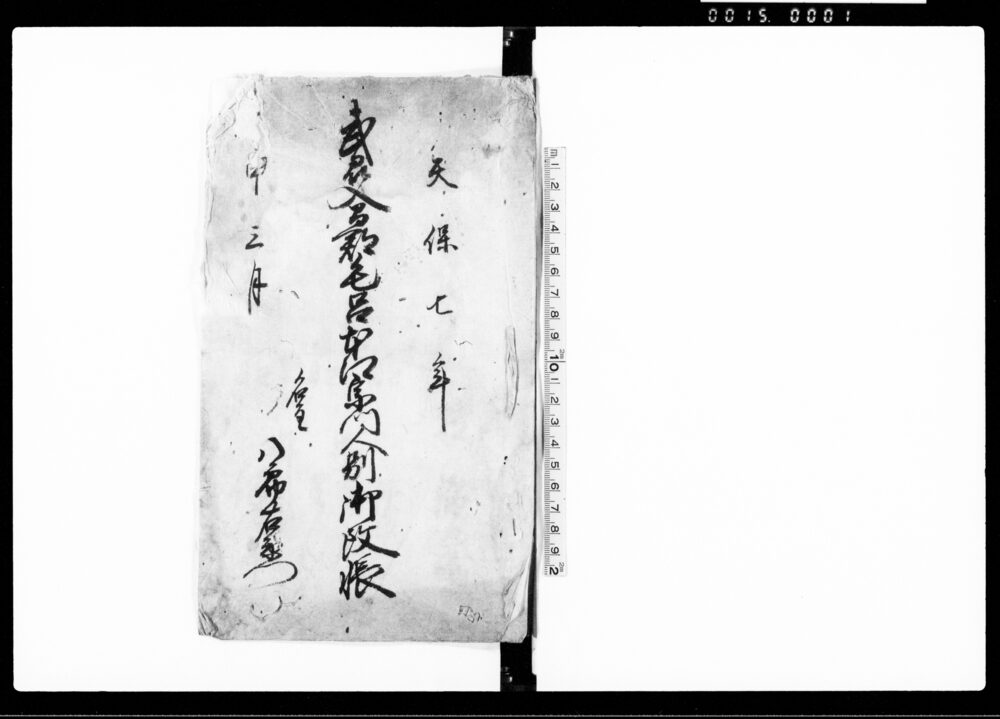 0015. 0001
天保七年
武州入間郡毛呂本郷宗門人別御改帳
申三月
名主
八郎右衛門
m 1 2 3 4 5 6 7 8 9 10 1 2 3 4 5 6 7 8 9 2